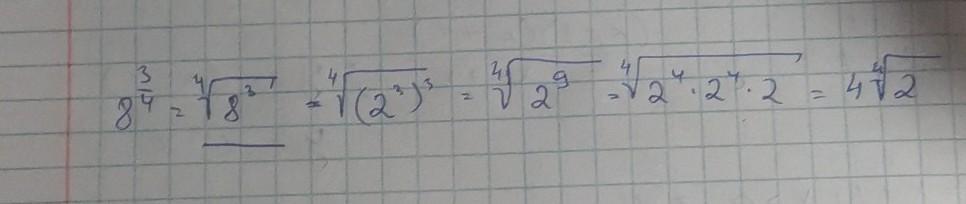 8^{\frac{3}{4}} = \sqrt[4]{8^3} = \sqrt[4]{(2^3)^3} = \sqrt[4]{2^9} = \sqrt[4]{2^4 \cdot 2^4 \cdot 2} = 4\sqrt[4]{2}